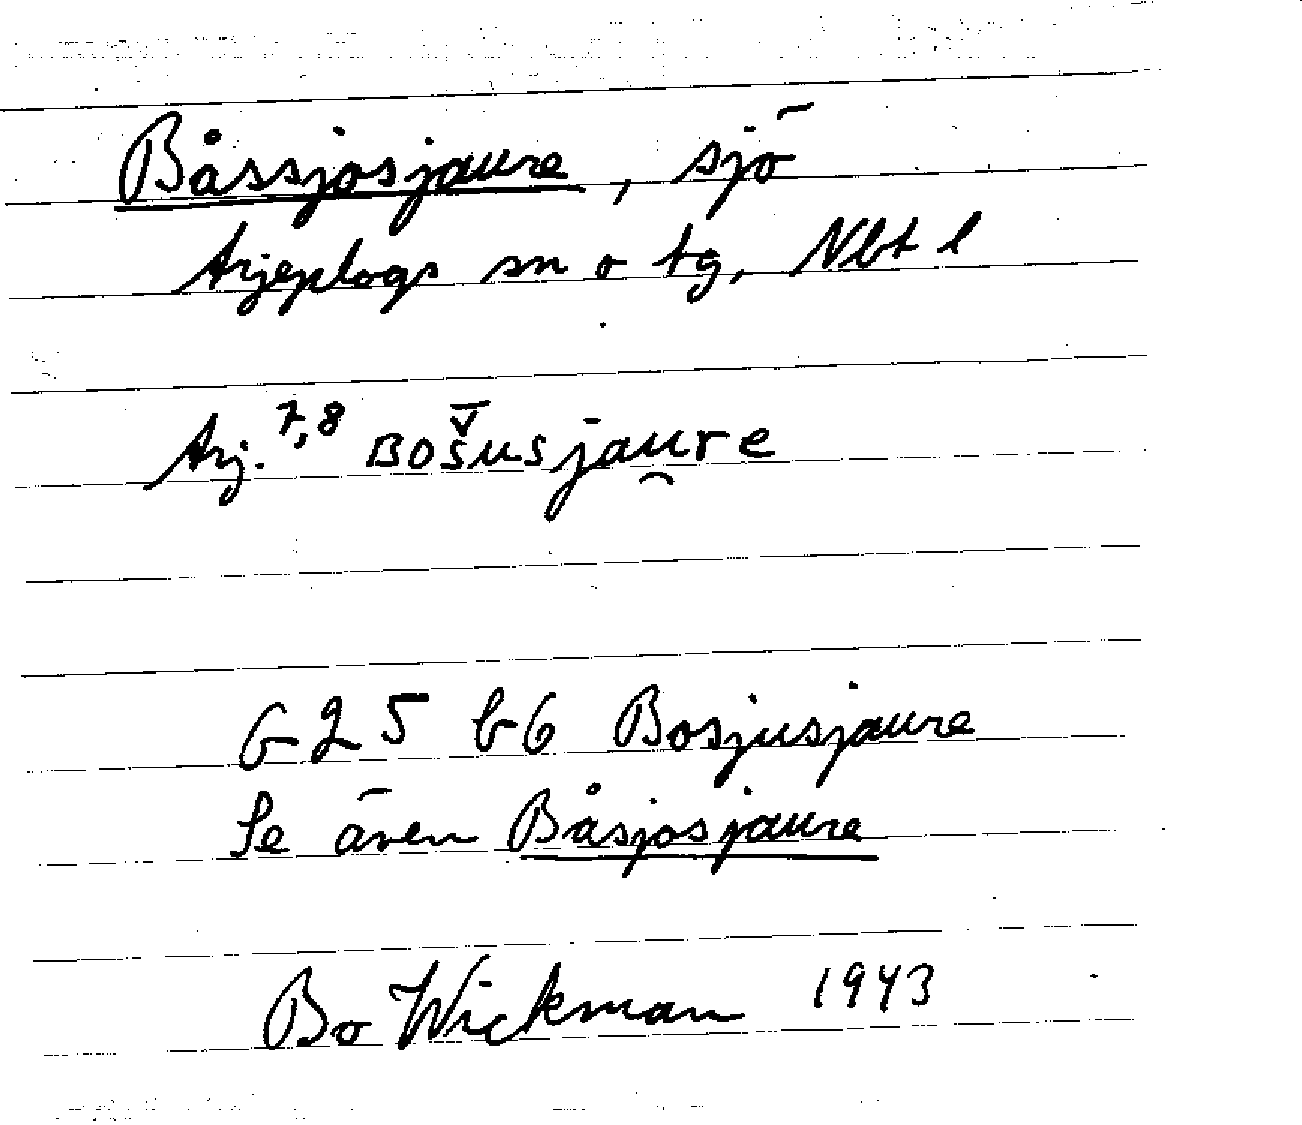 Båssjosjaure, sjö
Arjeplogs sn o tg, Nbt l
Arj. 7,8 ʙoš̄usjau̯re
G 25 b6 Bosjusjaure
Se även Båsjosjaure
Bo Wickman 1943